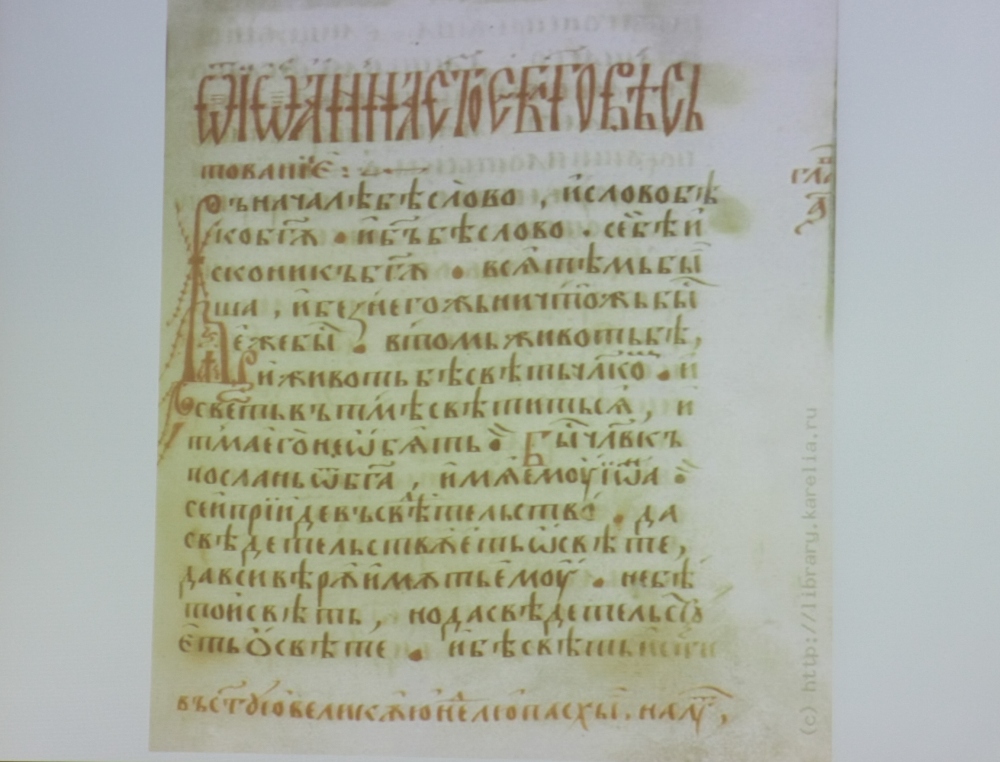 ѿ іѡанна ст҃ое бл҃говѣсь
тованїе :
въ начал ѣ бѣ слово , и слово бѣ
ко бг҃ꙋ • и бг҃ъ бѣ слово • се бѣ и
скони къ бг҃ꙋ • всѧ тѣмь бы
ша , и без него жь ничтожь бы
еже бы • в томь животь бѣ ,
и животь бѣ свѣть чл҃ко • и
свѣть въ тмѣ свѣтиться , и
тма его не ѡбѧть • Бы чл҃вкъ
послань ѿ бг҃а , имѧ емоу
сеи прїиде въ свѣтельство • да
свѣдетельствꙋеть ѡ свѣте ,
да вси вѣрꙋ имꙋть емоу • не бѣ
тои свѣть , но да свѣдетельст
еть ѡ свѣте • и бѣ свѣть
въ ст҃ꙋю великꙋю не҃лю пасхы . на
гла҃в
а҃
(c) http://library.karelia.ru